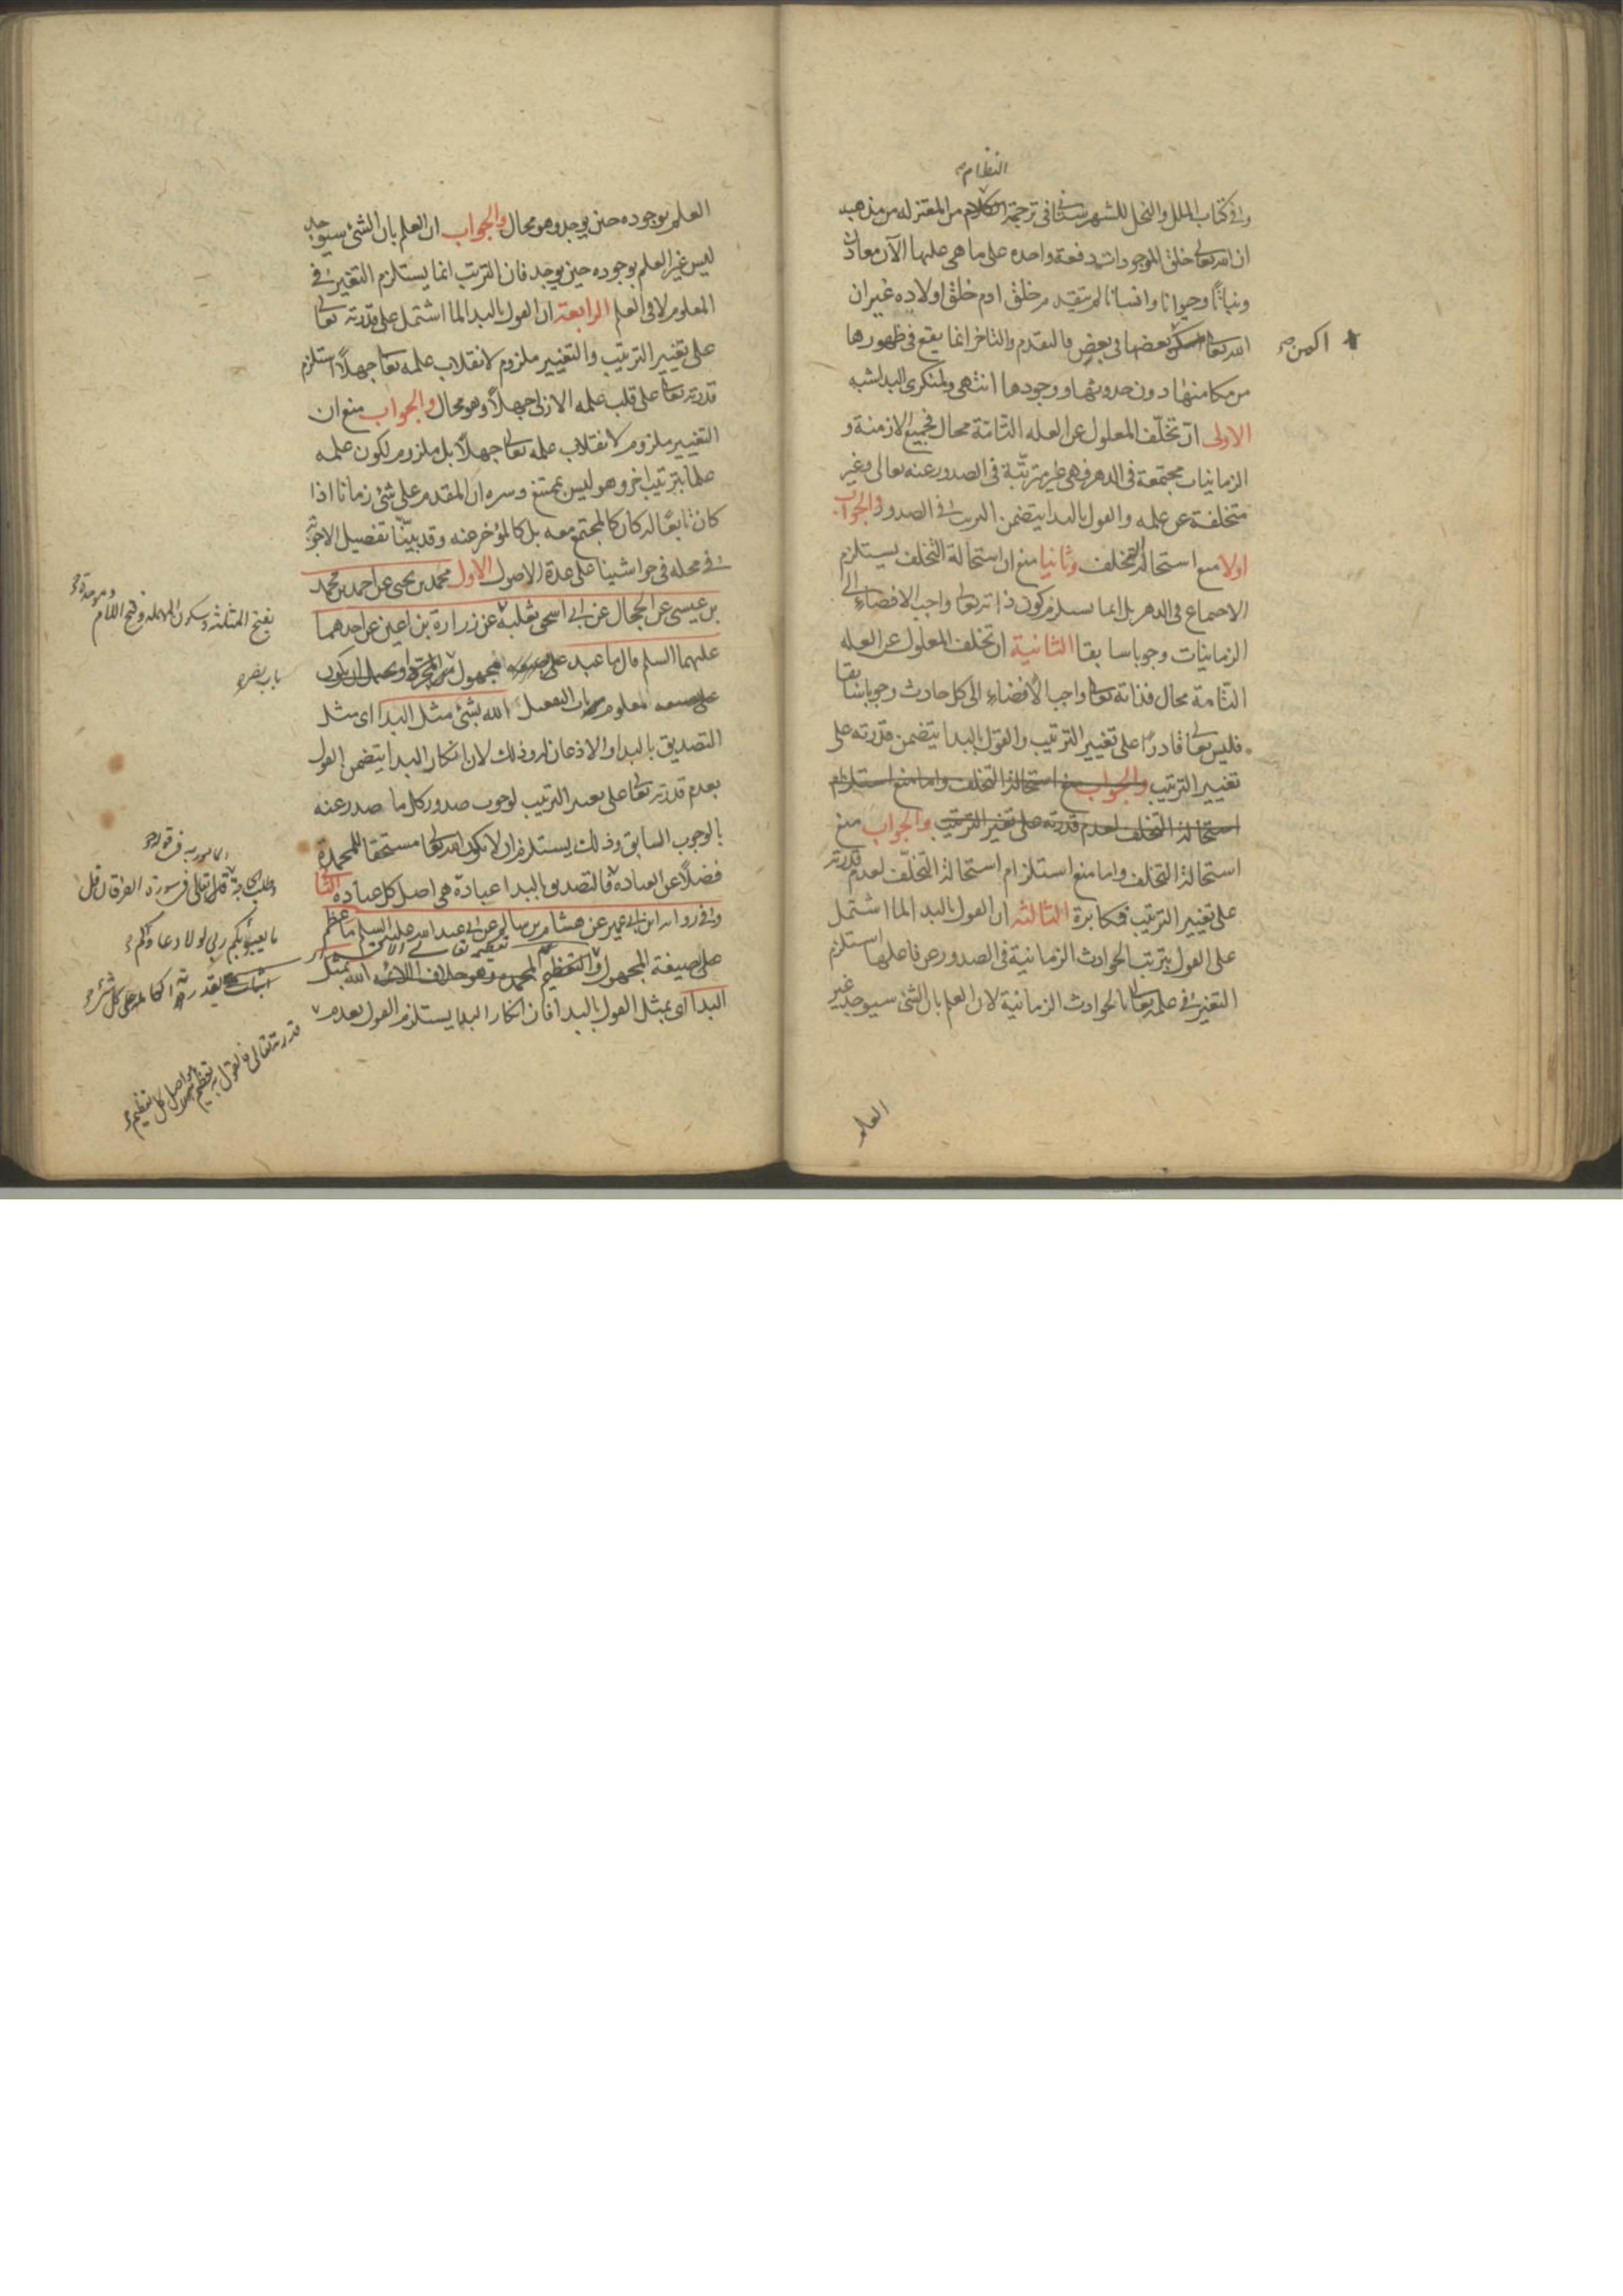 النظام
وفي كتاب الملل والنحل للشهرستاني في ترجمة الكلام من المعتزله من مذهبه
ان الله تعالى خلق الموجودات دفعة واحده على ما هي عليها الآن معادن
ونباتا وحيوانا وانسانا لم يتقدم خلق ادم خلق اولاده غير ان
الله تعالى بعضها في بعض فالتقدم والتاخر انما يقع في ظهورها
اكمن
من مكامنها دون حدوثها ووجودها انتهى ولمنكري البدا شبه
الاولى ان تخلّف المعلول عن العله التّامّة محال فجميع الازمنة و
الزمانيات مجتمعة في الدهر فهي غير مترتّبة في الصدور عنه تعالى وغير
متخلفة عن علمه والقول بالبدا يتضمن الترتيب في الصدور والجواب
اولا منع استحالة التخلف وثانيا منع ان استحالة التخلف يستلزم
الاجتماع في الدهر بل انما يستلزم كون ذاته تعالى واجب الافضاء الى
الزمانيات وجوبا سابقا الثانية ان تخلف المعلول عن العله
التّامة محال فذاته تعالى واجب الافضاء الى كل حادث وجوبا سابقا
فليس تعالى قادرا على تغيير الترتيب والقول بالبدا يتضمن قدرته على
تغيير الترتيب والجواب منع استحالة التخلف واما منع استلزام
استحالة التخلف لعدم قدرته على تغيير الترتيب والجواب منع
استحالة التخلف واما منع استلزام استحالة التخلّف لعدم قدرته
على تغيير الترتيب فمكابرة الثالثه ان القول بالبدا لما اشتمل
على القول بترتيب الحوادث الزمانية في الصدور عن فاعلها استلزم
التغير في علمه تعالى بالحوادث الزمانية لان العلم بان الشئ سيوجد غير
العلم
العلم بوجوده حين يوجد وهو محال والجواب ان العلم بان الشئ سيوجد
ليس غير العلم بوجوده حين يوجد فان الترتب انما يستلزم التغير في
المعلوم لا في العلم الرابعة ان القول بالبدا لما اشتمل على قدرته تعالى
على تغيير الترتيب والتغيير ملزوم لانقلاب علمه تعالى جهلاً استلزم
قدرته تعالى على قلب علمه الازلي جهلاً وهو محال والجواب منع ان
التغيير ملزوم لانقلاب علمه تعالى جهلاً بل ملزوم لكون علمه
علما بترتيب اخر وهو ليس بممتنع وسره ان المقدم على شئ زمانا اذا
كان تابعًا له كان كالمجتمع معه بل كالمؤخر عنه وقد بيّنّا تفصيل الاجوبة
في محله في حواشينا على عدة الاصول الاول محمد بن يحيى عن احمد بن محمد
بن عيسى عن الحجال عن ابي اسحق ثعلبة عن زرارة بن اعين عن احدهما
بفتح المثلثة وسكون المهملة وفتح اللام وموحدة
عليهما السلم قال ما عبد على المجهول من المجرد ويحتمل ان يكون
باب نصر
معلوم باب التفعيل الله بشئ مثل البدا اى مثل
التصديق بالبدا والاذعان له وذلك لان انكار البدا يتضمن القول
بعدم قدرته تعالى على تغيير الترتيب لوجوب صدور كل ما صدر عنه
بالوجوب السابق وذلك يستلزم ان لا يكون الله تعالى مستحقا للمحمدة
فضلاً عن العباده فالتصديق بالبدا عبادة هي اصل كل عباده الثاني
قال تعالى في سورة الفرقان قل
ما يعبؤ بكم ربي لولا دعاؤكم
وفي رواية ابن ابي عمير عن هشام بن سالم عن ابي عبد الله عليه السلم ما عظم
على صيغة المجهول والتعظيم الله بمثل
البدا اى بمثل القول بالبدا فان انكار البدا يستلزم القول بعدم
قدرته تعالى فالقول به تعظيم هو اصل كل تعظيم